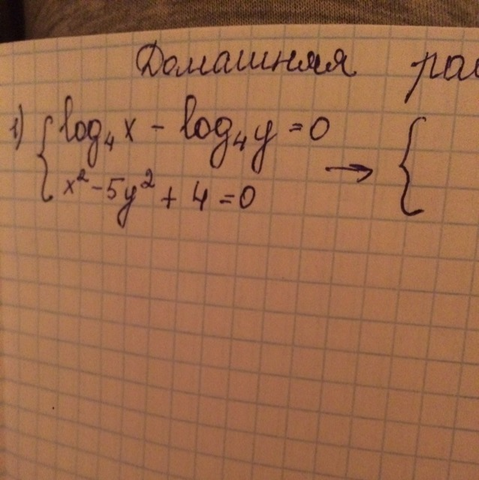 Домашняя
1) { log₄x - log₄y = 0 → {
x² - 5y² + 4 = 0